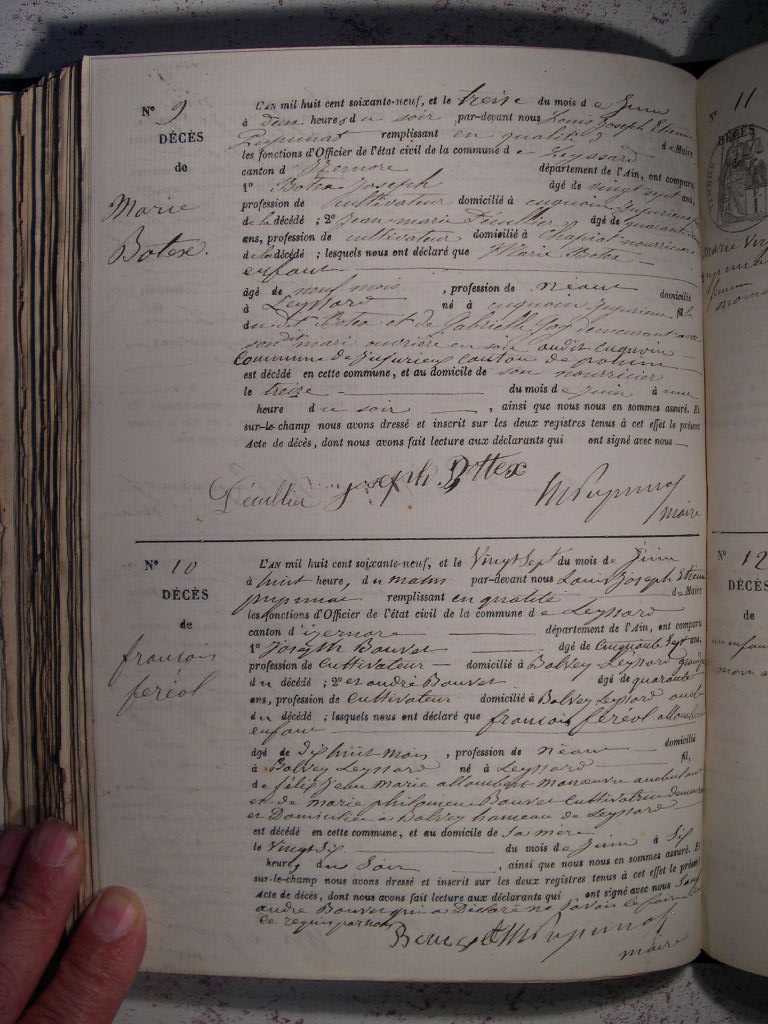 N° 9
DÉCÈS
de
Marie
Botex.
L'AN mil huit cent soixante-neuf, et le treize du mois de Juin
à deux heures du soir par-devant nous Louis Joseph Etienne
remplissant en qualité de Maire
les fonctions d'Officier de l'état civil de la commune de Leyssard
canton d'Izernore département de l'Ain, ont comparu
1° Botex Joseph âgé de vingt sept ans,
profession de cultivateur domicilié à cuquoin Jujurieux père
de la décédé ; 2° Jean marie Décullier âgé de quarante
ans, profession de cultivateur domicilié à Chapiat nourricier
de la décédé ; lesquels nous ont déclaré que Marie Botex
enfant
âgé de neuf mois , profession de néant domicilié
à Leyssard né à cuquoin Jujurieux fille
du dit Botex et de Gabrielle Joy demeurant avec
son dit mari ouvrière en soie audit Cuquoin
Commune de Jujurieux canton de poncin
est décédé en cette commune, et au domicile de son nourricier
le treize du mois de Juin à une
heure du soir , ainsi que nous nous en sommes assuré. Et
sur-le-champ nous avons dressé et inscrit sur les deux registres tenus à cet effet le présent
Acte de décès, dont nous avons fait lecture aux déclarants qui ont signé avec nous
Décullier Joseph Bottex
maire
N° 10
DÉCÈS
de
francois
feréol
L'AN mil huit cent soixante-neuf, et le Vingt Sept du mois de Juin
à huit heure, du matin par-devant nous Louis Joseph Etienne
remplissant en qualité de Maire
les fonctions d'Officier de l'état civil de la commune de Leyssard
canton d'izernore département de l'Ain, ont comparu
1° Joseph Bouvet âgé de Cinquante Sept ans,
profession de Cultivateur domicilié à Bolvey Leyssard grand
du décédé ; 2° et andré Bouvet âgé de quarante
ans, profession de Cultivateur domicilié à Bolvey Leyssard oncle
du décédé ; lesquels nous ont déclaré que francois feréol allombert
enfant
âgé de Dix huit mois , profession de néant domicilié
à Bolvey Leyssard né à Leyssard fil,
de félix Jean marie allombert manoeuvre ambulant
et de marie philomène Bouvet Cultivatrice demeurant
et Domiciliée à Bolvey hameau de Leyssard
est décédé en cette commune, et au domicile de Sa mère
le Vingt Six du mois de Juin à Six
heures du Soir , ainsi que nous nous en sommes assuré. Et
sur-le-champ nous avons dressé et inscrit sur les deux registres tenus à cet effet le présent
Acte de décès, dont nous avons fait lecture aux déclarants qui ont signé avec nous Sauf
andré Bouvet qui a Déclaré ne Savoir le faire
de requis par nous
Bouvet
maire
N° 11
DÉCÈS
N° 12
DÉCÈS
de